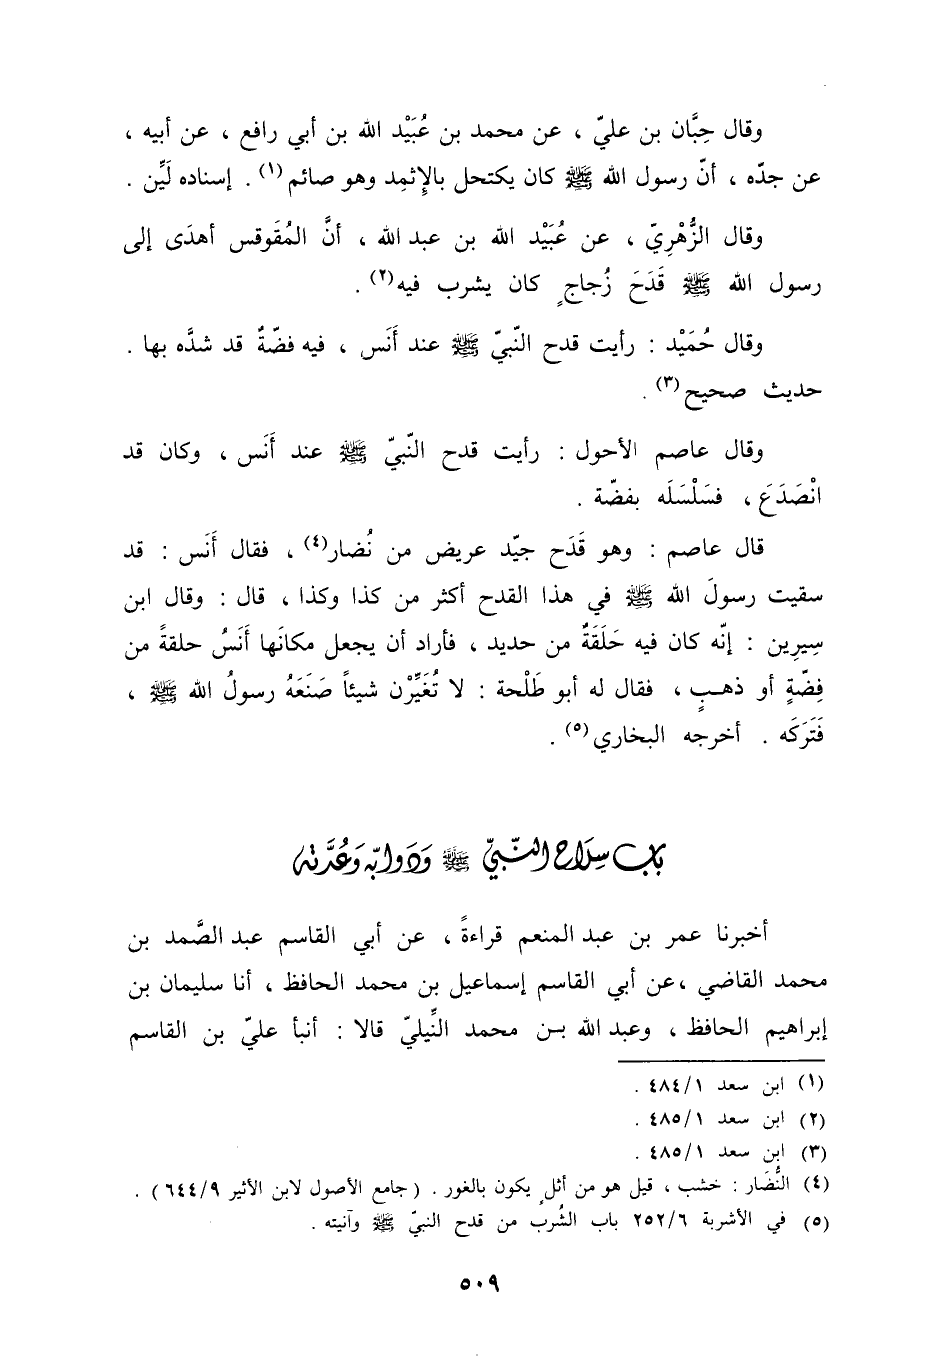 وقال حِبَّان بن عليّ ، عن محمد بن عُبَيْد الله بن أبي رافع ، عن أبيه ،
عن جدّه ، أنّ رسول الله ﷺ كان يكتحل بالإِثمِد وهو صائم(١) . إسناده لَيِّن .
وقال الزُّهْرِيّ ، عن عُبَيْد الله بن عبد الله ، أنَّ المُقَوقس أهدَى إلى
رسول الله ﷺ قَدَحَ زُجاجٍ كان يشرب فيه(٢) .
وقال حُمَيْد : رأيت قدح النّبيّ ﷺ عند أَنَس ، فيه فضّةٌ قد شدَّه بها .
حديث صحيح(٣) .
وقال عاصم الأحول : رأيت قدح النّبيّ ﷺ عند أَنَس ، وكان قد
انْصَدَعَ ، فسَلْسَلَه بفضّة .
قال عاصم : وهو قَدَح جيّد عريض من نُضار(٤) ، فقال أَنَس : قد
سقيت رسولَ الله ﷺ في هذا القدح أكثر من كذا وكذا ، قال : وقال ابن
سِيرِين : إنّه كان فيه حَلَقَةٌ من حديد ، فأراد أن يجعل مكانَها أنَسُ حلقةً من
فِضّةٍ أو ذهبٍ ، فقال له أبو طَلْحة : لا تُغَيِّرْن شيئاً صَنَعَهُ رسولُ الله ﷺ ،
فَتَرَكَه . أخرجه البخاري(٥) .
باب سلاح النّبيّ ﷺ ودوابّه وعُدَّته
أخبرنا عمر بن عبد المنعم قراءةً ، عن أبي القاسم عبد الصَّمد بن
محمد القاضي ، عن أبي القاسم إسماعيل بن محمد الحافظ ، أنا سليمان بن
إبراهيم الحافظ ، وعبد الله بن محمد النِّيليّ قالا : أنبأ عليّ بن القاسم
(١) ابن سعد ٤٨٤/١ .
(٢) ابن سعد ٤٨٥/١ .
(٣) ابن سعد ٤٨٥/١ .
(٤) النُّضَار : خشب ، قيل هو من أثلٍ يكون بالغور . ( جامع الأصول لابن الأثير ٦٤٤/٩ ) .
(٥) في الأشربة ٢٥٢/٦ باب الشُرب من قدح النبيّ ﷺ وآنيته .
٥٠٩